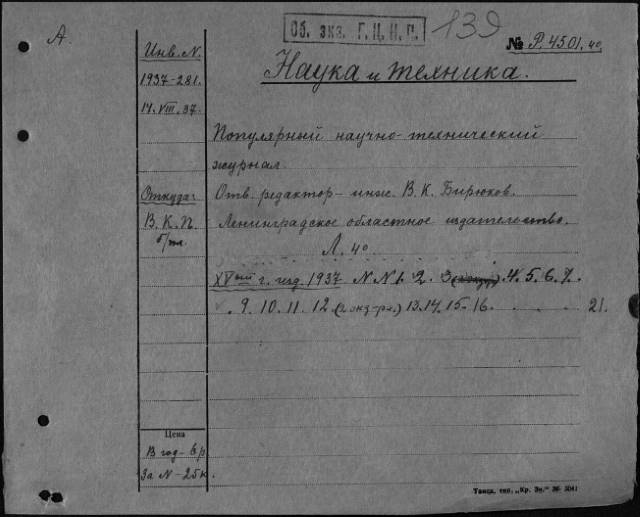 А.
Об. экз. Г. Ц. К. П.
139
№ Р. 4501. 40.
Инв. N.
1937-281.
14. VIII. 37.
Наука и техника.
Популярный научно-технический
журнал.
Откуда:
В. К. П.
б/пл.
Отв. редактор - инж. В. К. Бирюков.
Ленинградское областное издательство.
Л. 40
XVый г. изд. 1937 N N 1. 2. 3 4. 5. 6. 7.
9. 10. 11. 12 (2 экз-ра.) 13. 14. 15. 16. 21.
Цена
В год - 6 р
За N - 25 к.
Танца. тип. „Кр. Зн." Зак. 5041